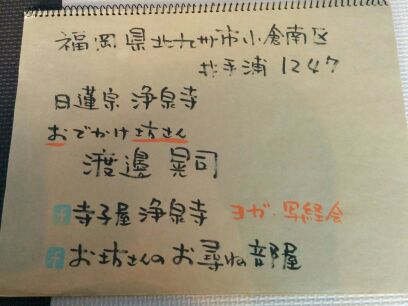 福岡県北九州市小倉南区
井手浦1247
日蓮宗 浄泉寺
おでかけ坊さん
渡邊晃司
f 寺子屋 浄泉寺 ヨガ・写経会
f お坊さんのお尋ね部屋